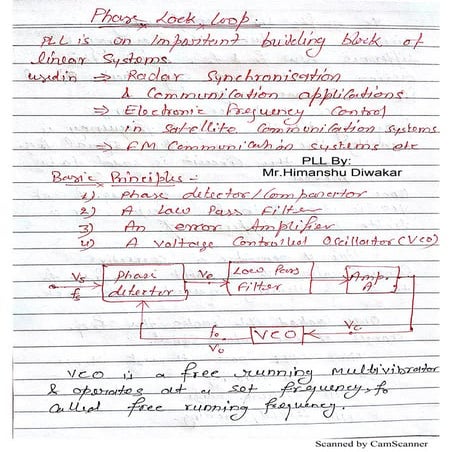 Phase Lock Loop.
PLL is an Important building block of
linear Systems.
used in ⇒ Radar Synchronisation
& Communication applications
⇒ Electronic Frequency Control
in Satellite Communication systems
⇒ FM Communication systems etc
PLL By:
Mr.Himanshu Diwakar
Basic Principles :-
1) Phase detector/Comparator
2) A Low Pass Filter
3) An error Amplifier
4) A voltage Controlled Oscillator (VCO)
Vs
fs
Phase detector
Ve
Low Pass Filter
Amp. A
fo
Vo
VCO
Vc
VCO is a free running multivibrator
& operates at a set frequency fo
Called free running frequency.
Scanned by CamScanner